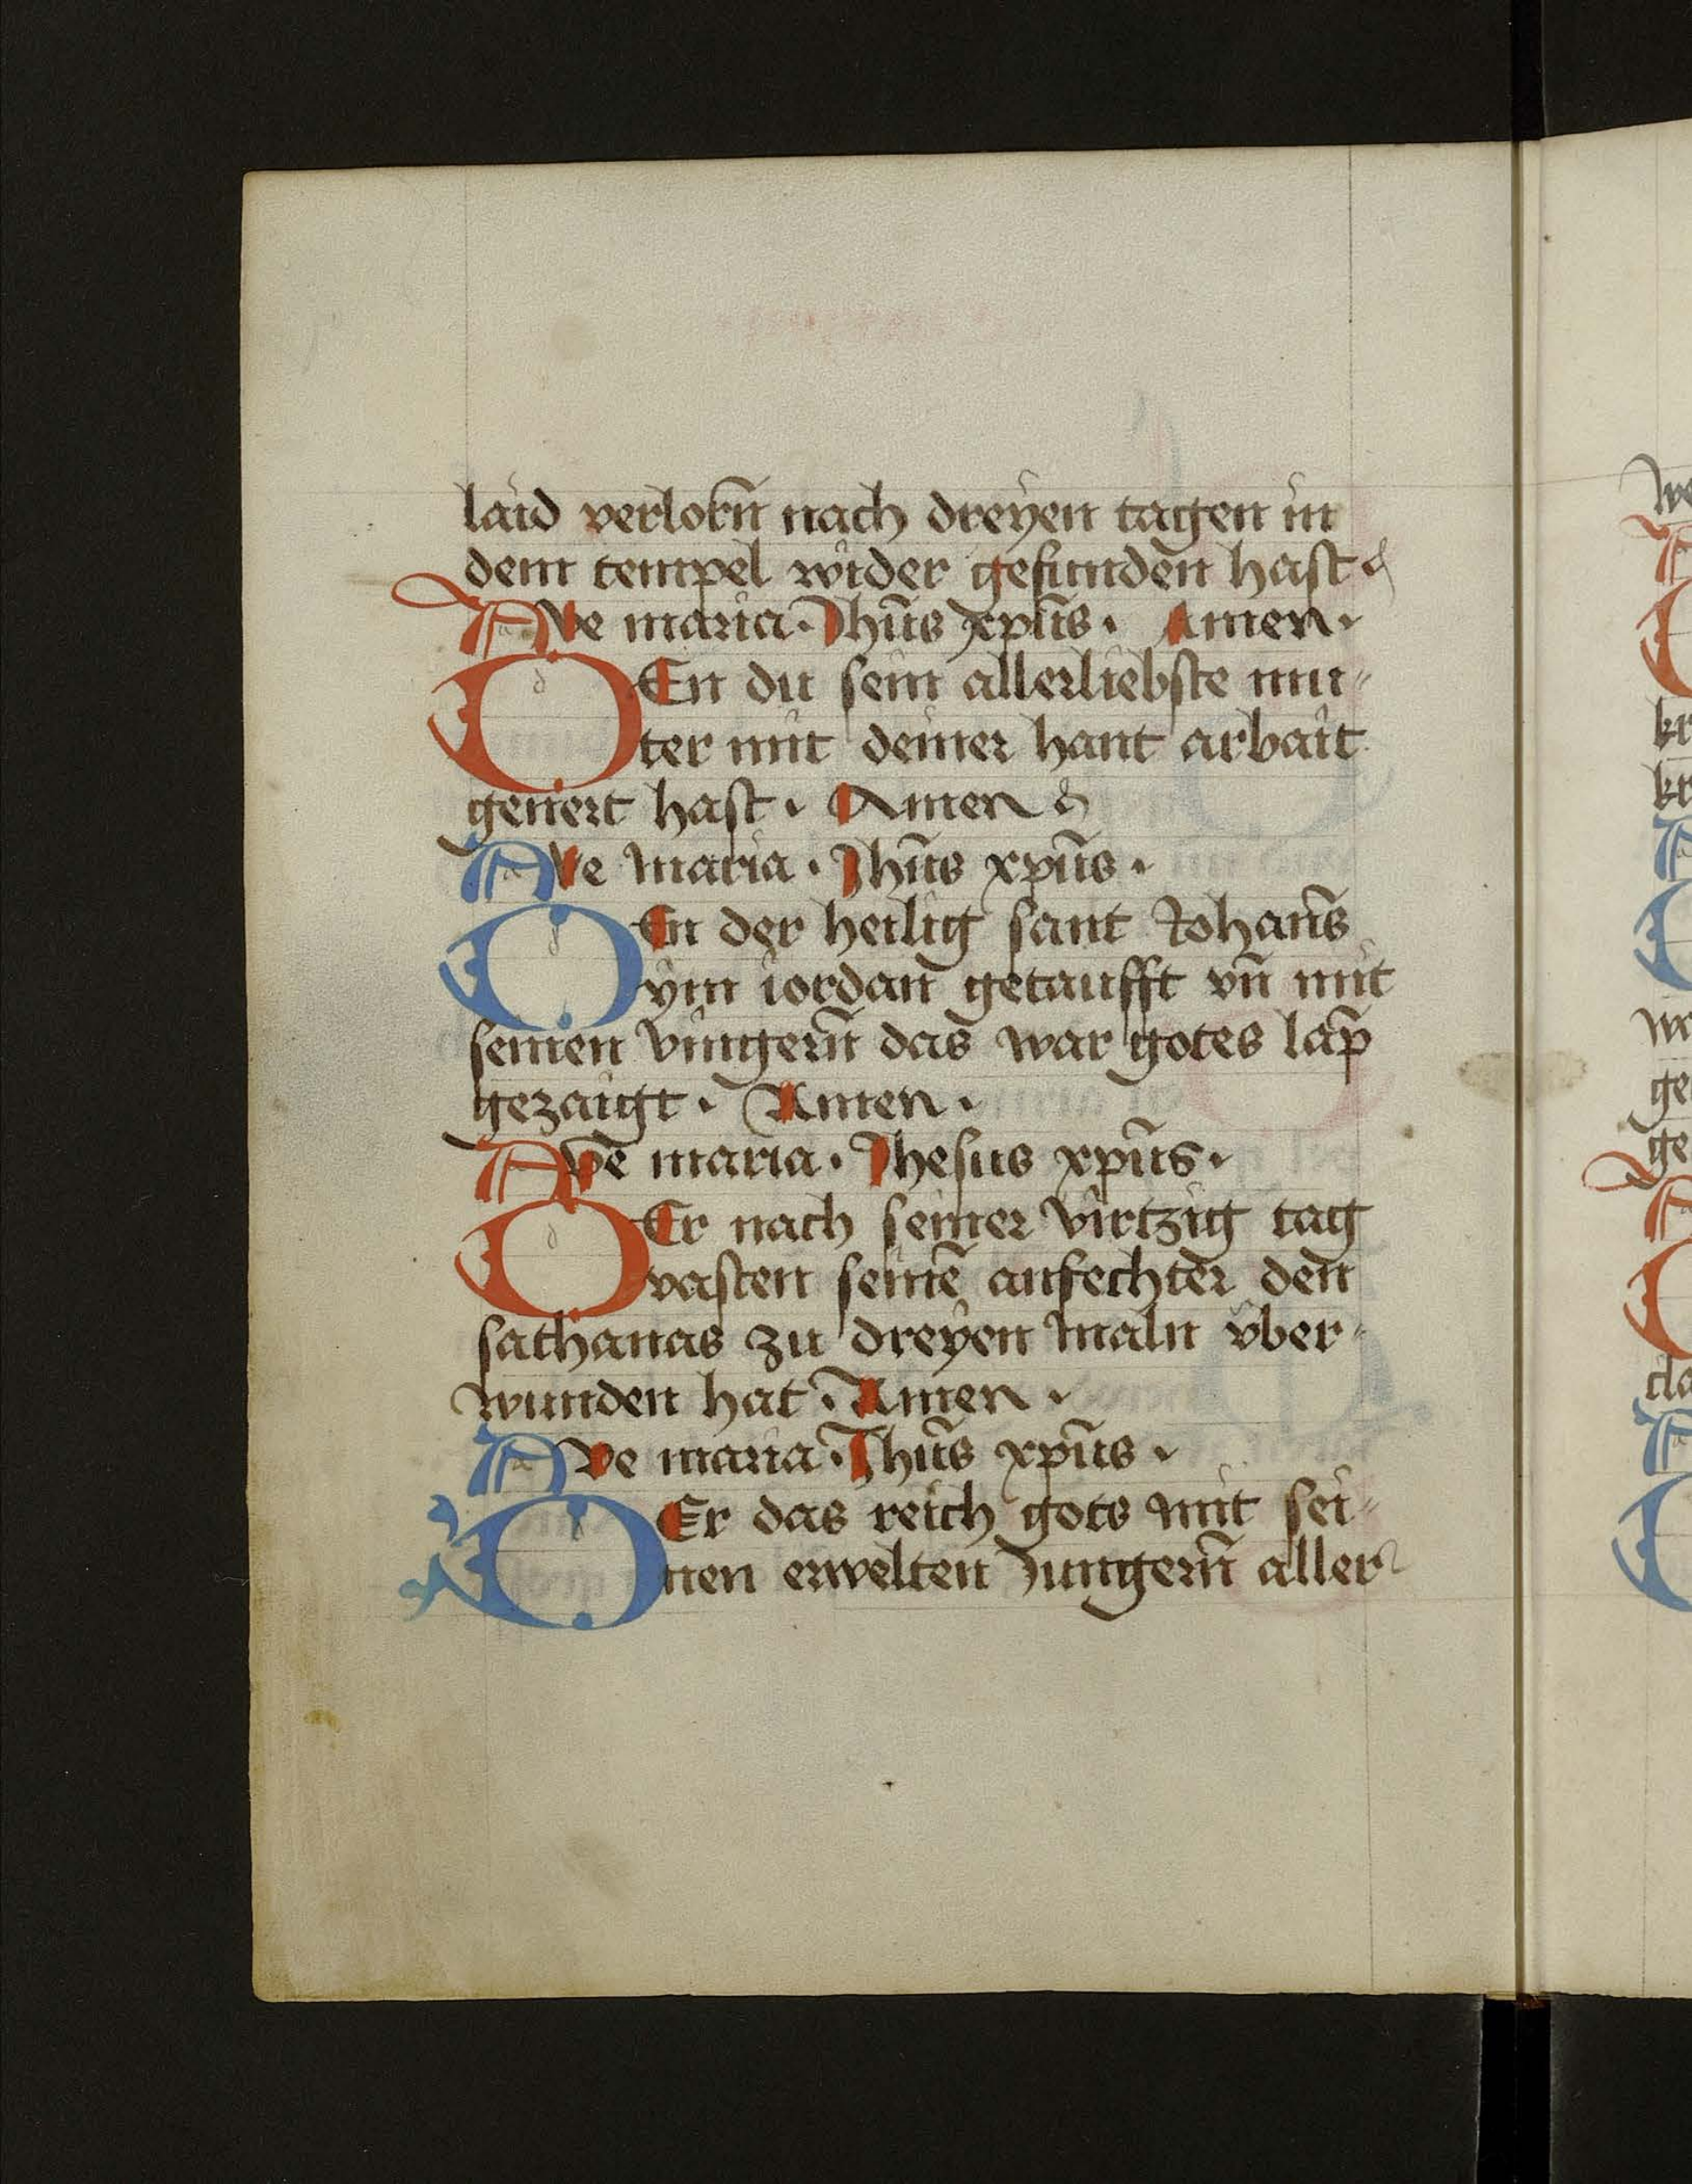 laid verlorñ nach dreyen tagen in
dem tempel wider gefunden hast
Ave maria. Jhũs xpũs. Amen.
DEn du sein allerliebste mu-
ter mit deiner hant arbait
genert hast. Amen
Ave maria. Jhũs xpũs.
DEn der heilig sant Johañs
ym iordan getaufft vñ mit
seinen vingerñ das war gotes lap̃
gezaigt. Amen.
Ave maria. Jhesus xpũs.
DEr nach seiner virtzig tag
vasten seinẽ anfechter den
sathanas zu dreyen maln vber-
wunden hat. Amen.
Ave maria. Jhũs xpũs.
DEr das reich gots mit sei-
nen erwelten Jungerñ aller